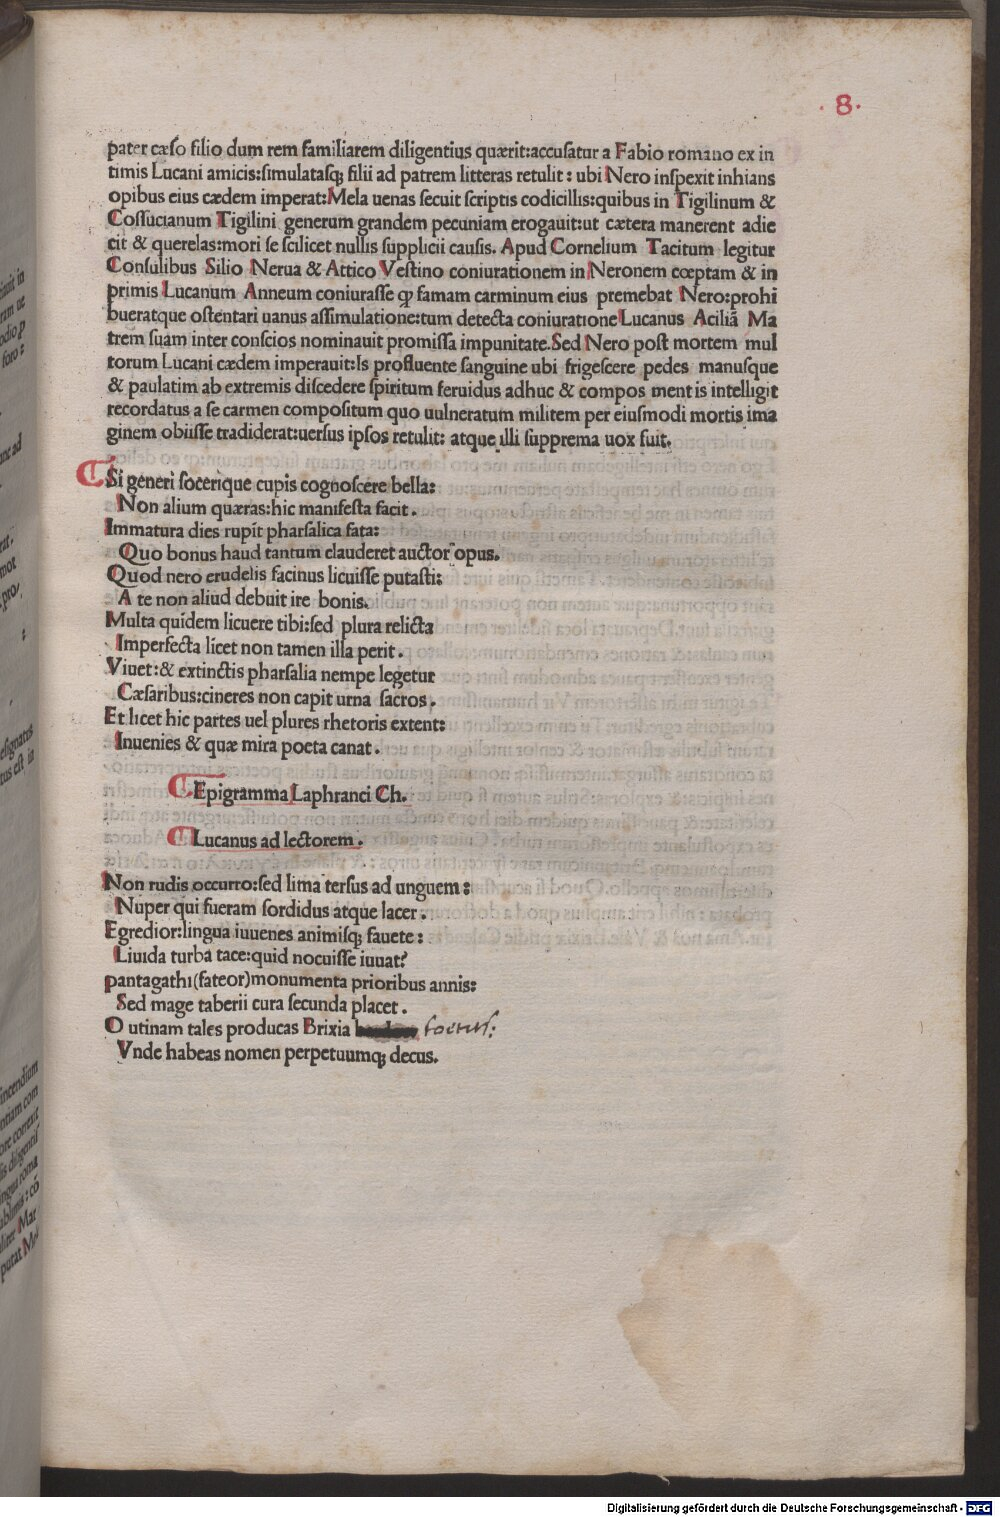 .8.
pater cæſo filio dum rem familiarem diligentius quærit:accuſatur a Fabio romano ex in
timis Lucani amicis:ſimulataſqꝫ filii ad patrem litteras retulit: ubi Nero inſpexit inhians
opibus eius cædem imperat:Mela uenas ſecuit ſcriptis codicillis:quibus in Tigilinum &
Coſſucianum Tigilini generum grandem pecuniam erogauit:ut cætera manerent adie
cit & querelas:mori ſe ſcilicet nullis ſupplicii cauſis. Apud Cornelium Tacitum legitur
Conſulibus Silio Nerua & Attico Veſtino coniurationem in Neronem cœptam & in
primis Lucanum Anneum coniuraſſe ꝙ famam carminum eius premebat Nero:prohi
bueratque oſtentari uanus aſſimulatione:tum detecta coniuratione Lucanus Aciliã Ma
trem ſuam inter conſcios nominauit promiſſa impunitate.Sed Nero poſt mortem mul
torum Lucani cædem imperauit:Is profluente ſanguine ubi frigeſcere pedes manuſque
& paulatim ab extremis diſcedere ſpiritum feruidus adhuc & compos mentis intelligit
recordatus a ſe carmen compoſitum quo uulneratum militem per eiuſmodi mortis ima
ginem obiiſſe tradiderat:uerſus ipſos retulit: atque illi ſupprema uox fuit.
Si generi ſocerique cupis cognoſcere bella:
Non alium quæras:hic manifeſta facit.
Immatura dies rupit pharſalica fata:
Quo bonus haud tantum clauderet auctor opus.
Quod nero crudelis facinus licuiſſe putaſti:
A te non aliud debuit ire bonis.
Multa quidem licuere tibi:ſed plura relicta
Imperfecta licet non tamen illa perit.
Viuet:& extinctis pharſalia nempe legetur
Cæſaribus:cineres non capit urna ſacros.
Et licet hic partes uel plures rhetoris extent:
Inuenies & quæ mira poeta canat.
Epigramma Laphranci Ch.
Lucanus ad lectorem.
Non rudis occurro:ſed lima terſus ad unguem:
Nuper qui fueram ſordidus atque lacer.
Egredior:lingua iuuenes animiſqꝫ fauete:
Liuida turba tace:quid nocuiſſe iuuat?
pantagathi(fateor)monumenta prioribus annis:
Sed mage taberii cura ſecunda placet.
O utinam tales producas Brixia foetuſ:
Vnde habeas nomen perpetuumqꝫ decus.
Digitalisierung gefördert durch die Deutsche Forschungsgemeinschaft - DFG